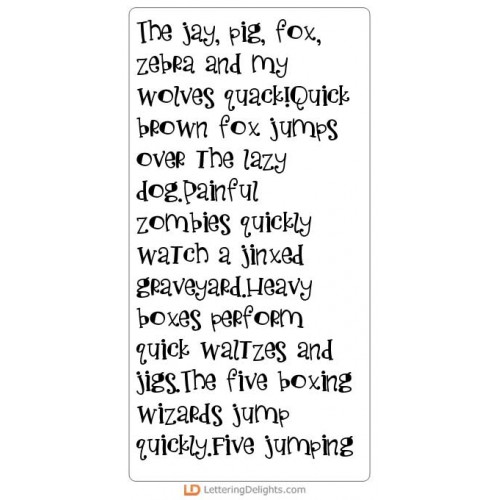 The jay, pig, fox,
zebra and my
wolves quack!Quick
brown fox jumps
over the lazy
dog.Painful
zombies quickly
watch a jinxed
graveyard.Heavy
boxes perform
quick waltzes and
jigs.The five boxing
wizards jump
quickly.Five jumping
LD LetteringDelights.com